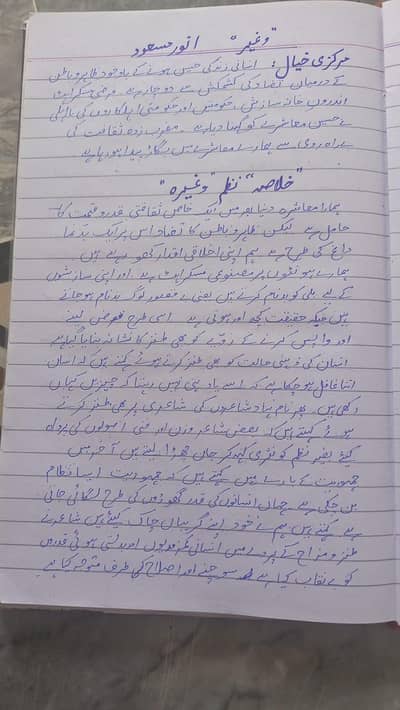 "وغیرہ" انور مسعود
مرکزی خیال: انسانی زندگی حسین ہونے کے باوجود ظاہر و باطن
کے درمیان تضاد کی کشمکش سے دوچار ہے۔ فرضی مسکراہٹ
اندرون خانہ سازش، حکومتیں اور حکومتی اہلکاروں کی نااہلی
نے حسین معاشرے کو گہنا دیا ہے۔ مغرب زدہ ثقافت کی
بے راہ روی سے ہمارے معاشرے میں بگاڑ پیدا ہو رہا ہے
"خلاصہ" نظم "وغیرہ"
ہمارا معاشرہ دنیا بھر میں ایک خاص ثقافتی قدر و قیمت کا
حامل ہے لیکن ظاہر و باطن کا تضاد اس پر ایک بدنما
داغ کی طرح ہے ہم اپنی اخلاقی اقدار کھو رہے ہیں
ہمارے ہونٹوں پر مصنوعی مسکراہٹ ہے اور اپنی سازشوں
کے لیے بلی کو بدنام کرتے ہیں یعنی بے قصور لوگ بدنام ہو جاتے
ہیں جبکہ حقیقت کچھ اور ہوتی ہے اسی طرح قرض لینے
اور واپس کرنے کے رویے کو بھی طنز کا نشانہ بنایا گیا ہے
انسان کی ذہنی حالت کو بھی طنز کرتے ہوئے کہتے ہیں کہ انسان
اتنا غافل ہو چکا ہے کہ اسے یاد ہی نہیں رہتا کہ چیزیں کہاں
رکھی ہیں۔ پھر نام نہاد شاعروں کی شاعری پر بھی طنز کرتے
ہوئے کہتے ہیں کہ بعض شاعر وزن اور فنی اصولوں کی پرواہ
کیئے بغیر نظم کو نثری کہہ کر جان چھڑا لیتے ہیں آخر میں
جمہوریت کے بارے میں کہتے ہیں کہ جمہوریت ایسا نظام
بن چکی ہے جہاں انسانوں کی قدر گھوڑوں کی طرح لگائی جاتی
ہے کہتے ہیں ہم نے خود اپنے گریباں چاک کیئے ہیں شاعر نے
طنز و مزاح کے پردے میں انسانی کمزوریوں اور بدلتی ہوئی قدریں
کو بے نقاب کیا ہے سوچنے اور اصلاح کی طرف متوجہ کیا ہے